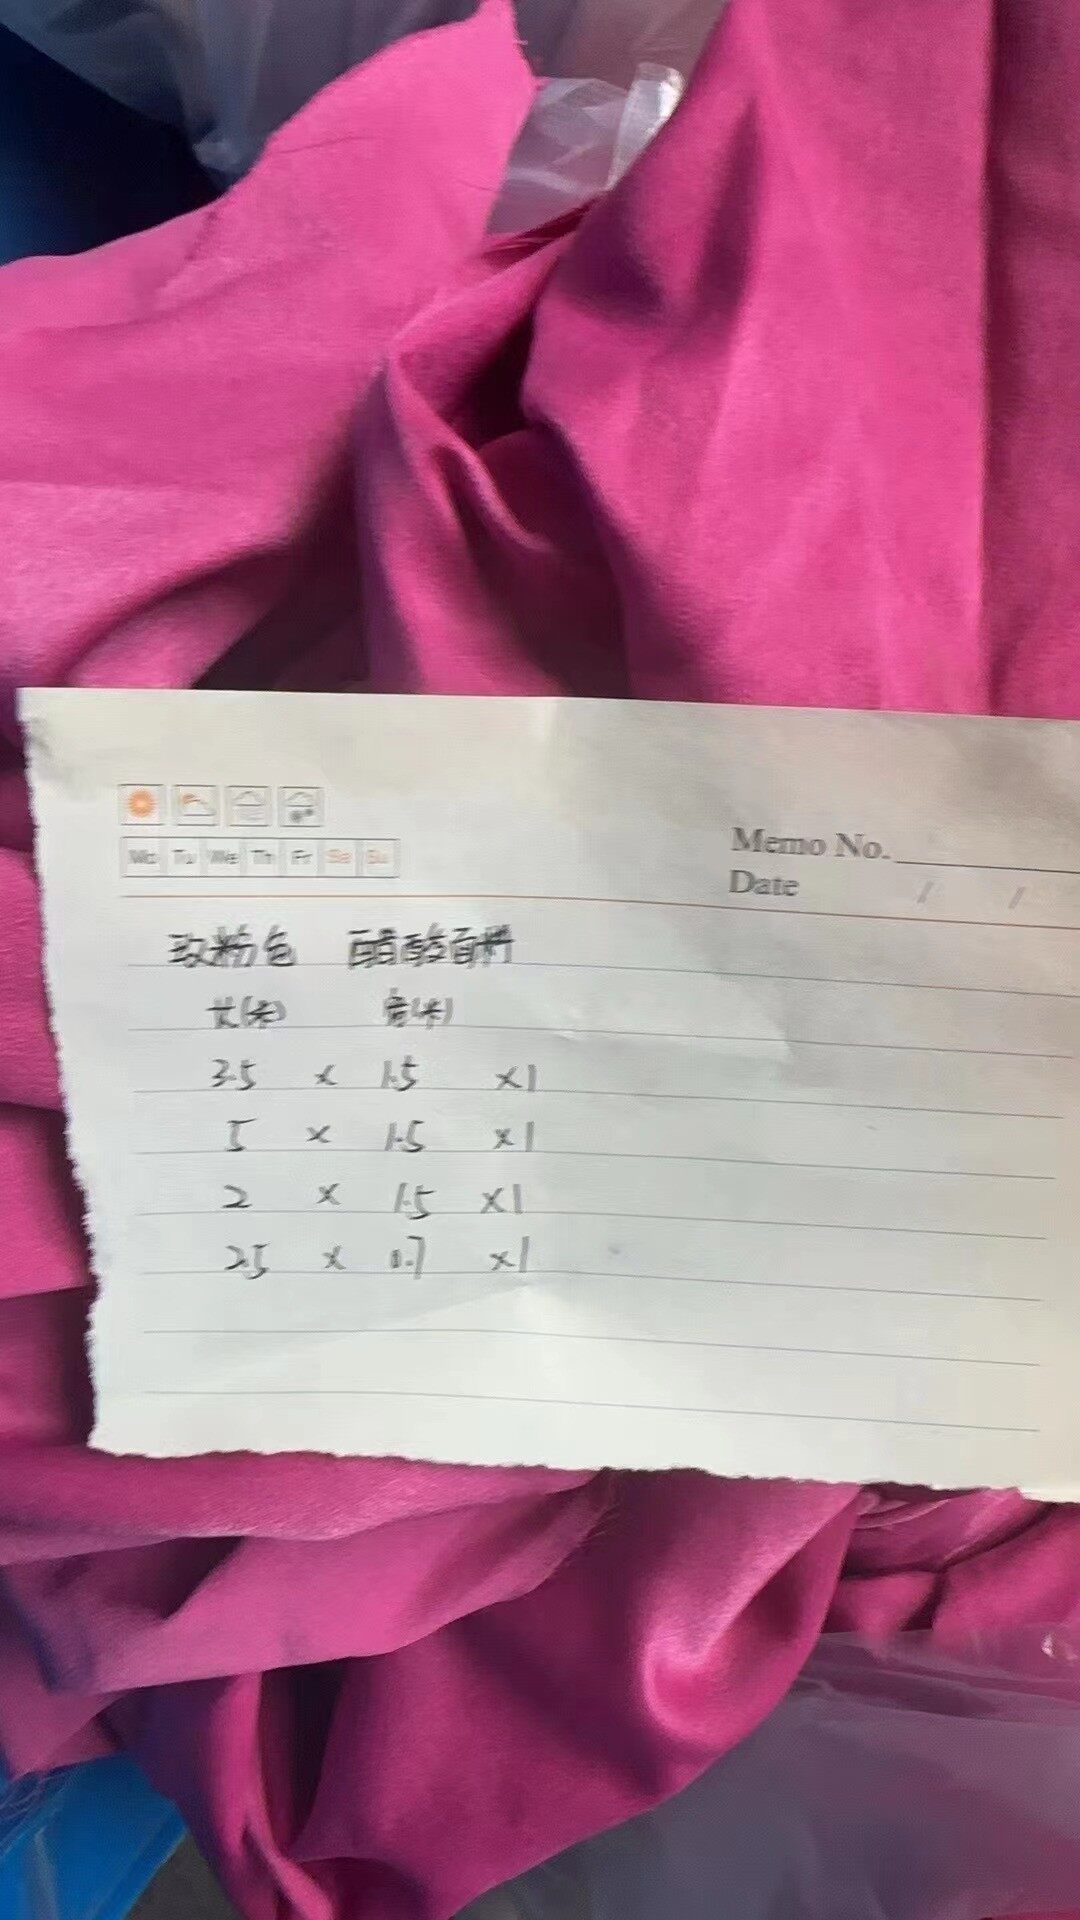 Mo Tu We Th Fr Sa Su
Memo No.
Date / /
玫粉色 醋酸面料
长(米) 宽(米)
3.5 x 1.5 x1
5 x 1.5 x1
2 x 1.5 x1
2.5 x 0.7 x1